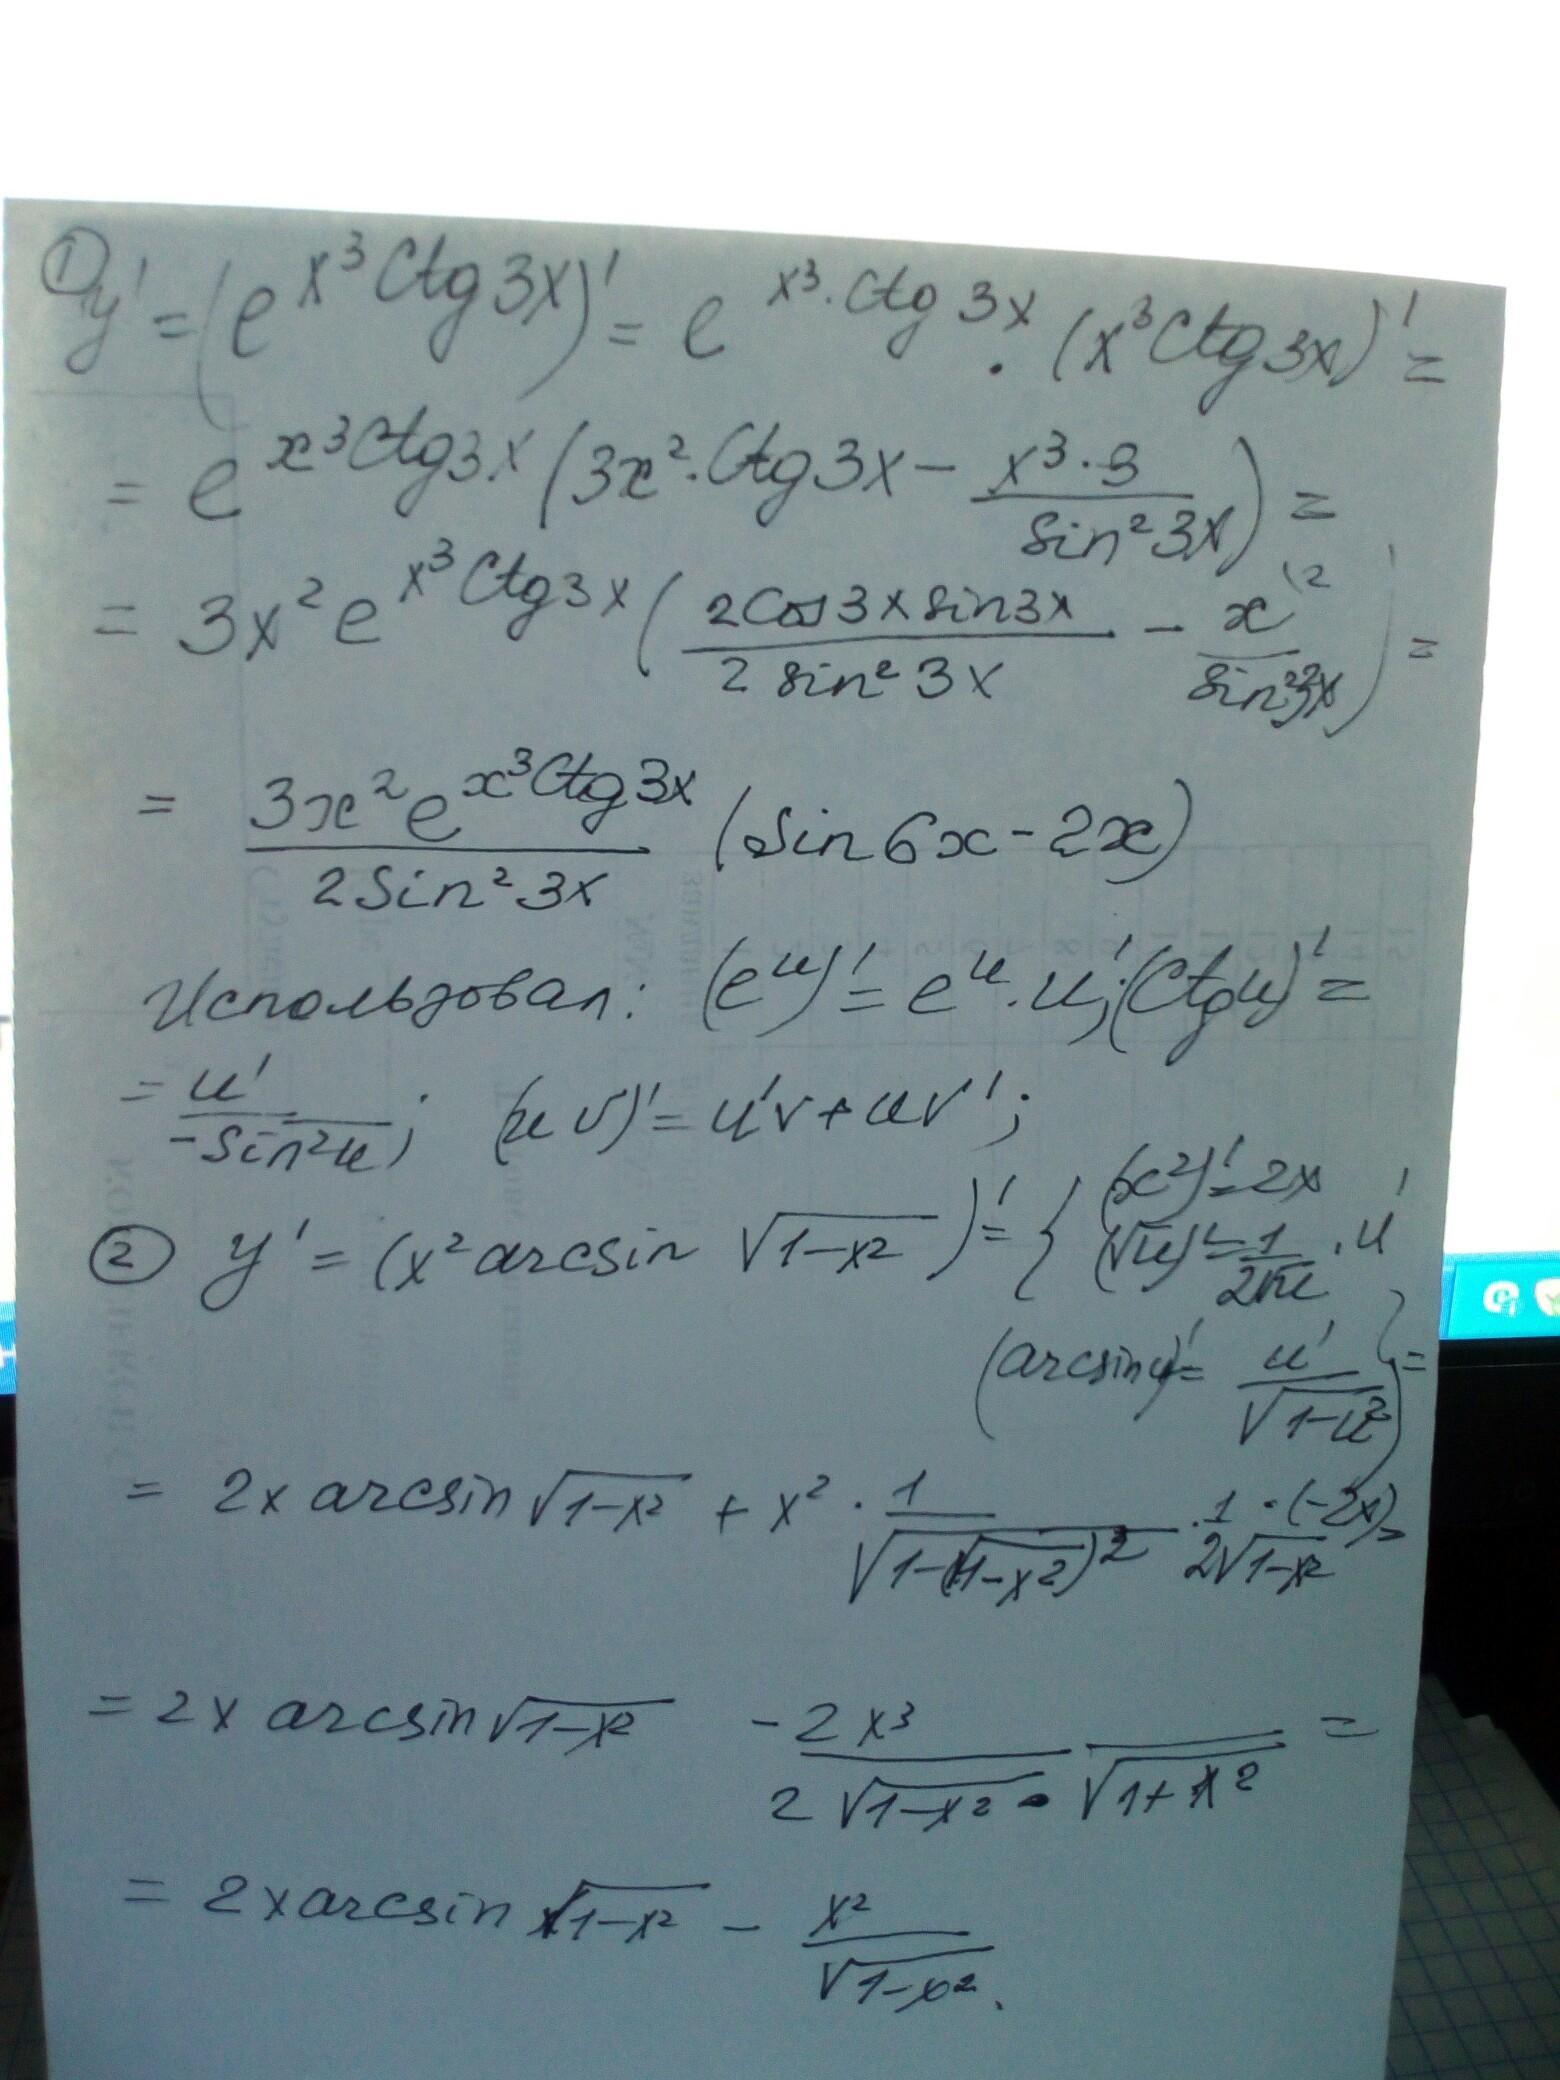 ① y' = (e^{x³Ctg3x})' = e^{x³·Ctg3x} · (x³Ctg3x)' =
= e^{x³Ctg3x} (3x²·Ctg3x − \frac{x³·3}{sin²3x}) =
= 3x²e^{x³Ctg3x} (\frac{2Cos3x sin3x}{2sin²3x} − \frac{x^{\2}}{sin²3x}) =
= \frac{3x²e^{x³Ctg3x}}{2Sin²3x} (sin6x − 2x)
Использовал: (e^u)' = e^u·u'; (Ctgu)' =
= \frac{u'}{−Sin²u}; (uv)' = u'v + uv';
② y' = (x² arcsin √(1−x²))' = { (x²)' = 2x
(√u)' = \frac{1}{2√u}·u'
(arcsinu)' = \frac{u'}{√(1−u²)} } =
= 2x arcsin √(1−x²) + x² · \frac{1}{√(1−(√(1−x²))²)} · \frac{1}{2√(1−x²)} · (−2x) =
= 2x arcsin √(1−x²) \frac{−2x³}{2√(1−x²) · √(1+x²)} =
= 2x arcsin √(1−x²) − \frac{x²}{√(1−x²)}.